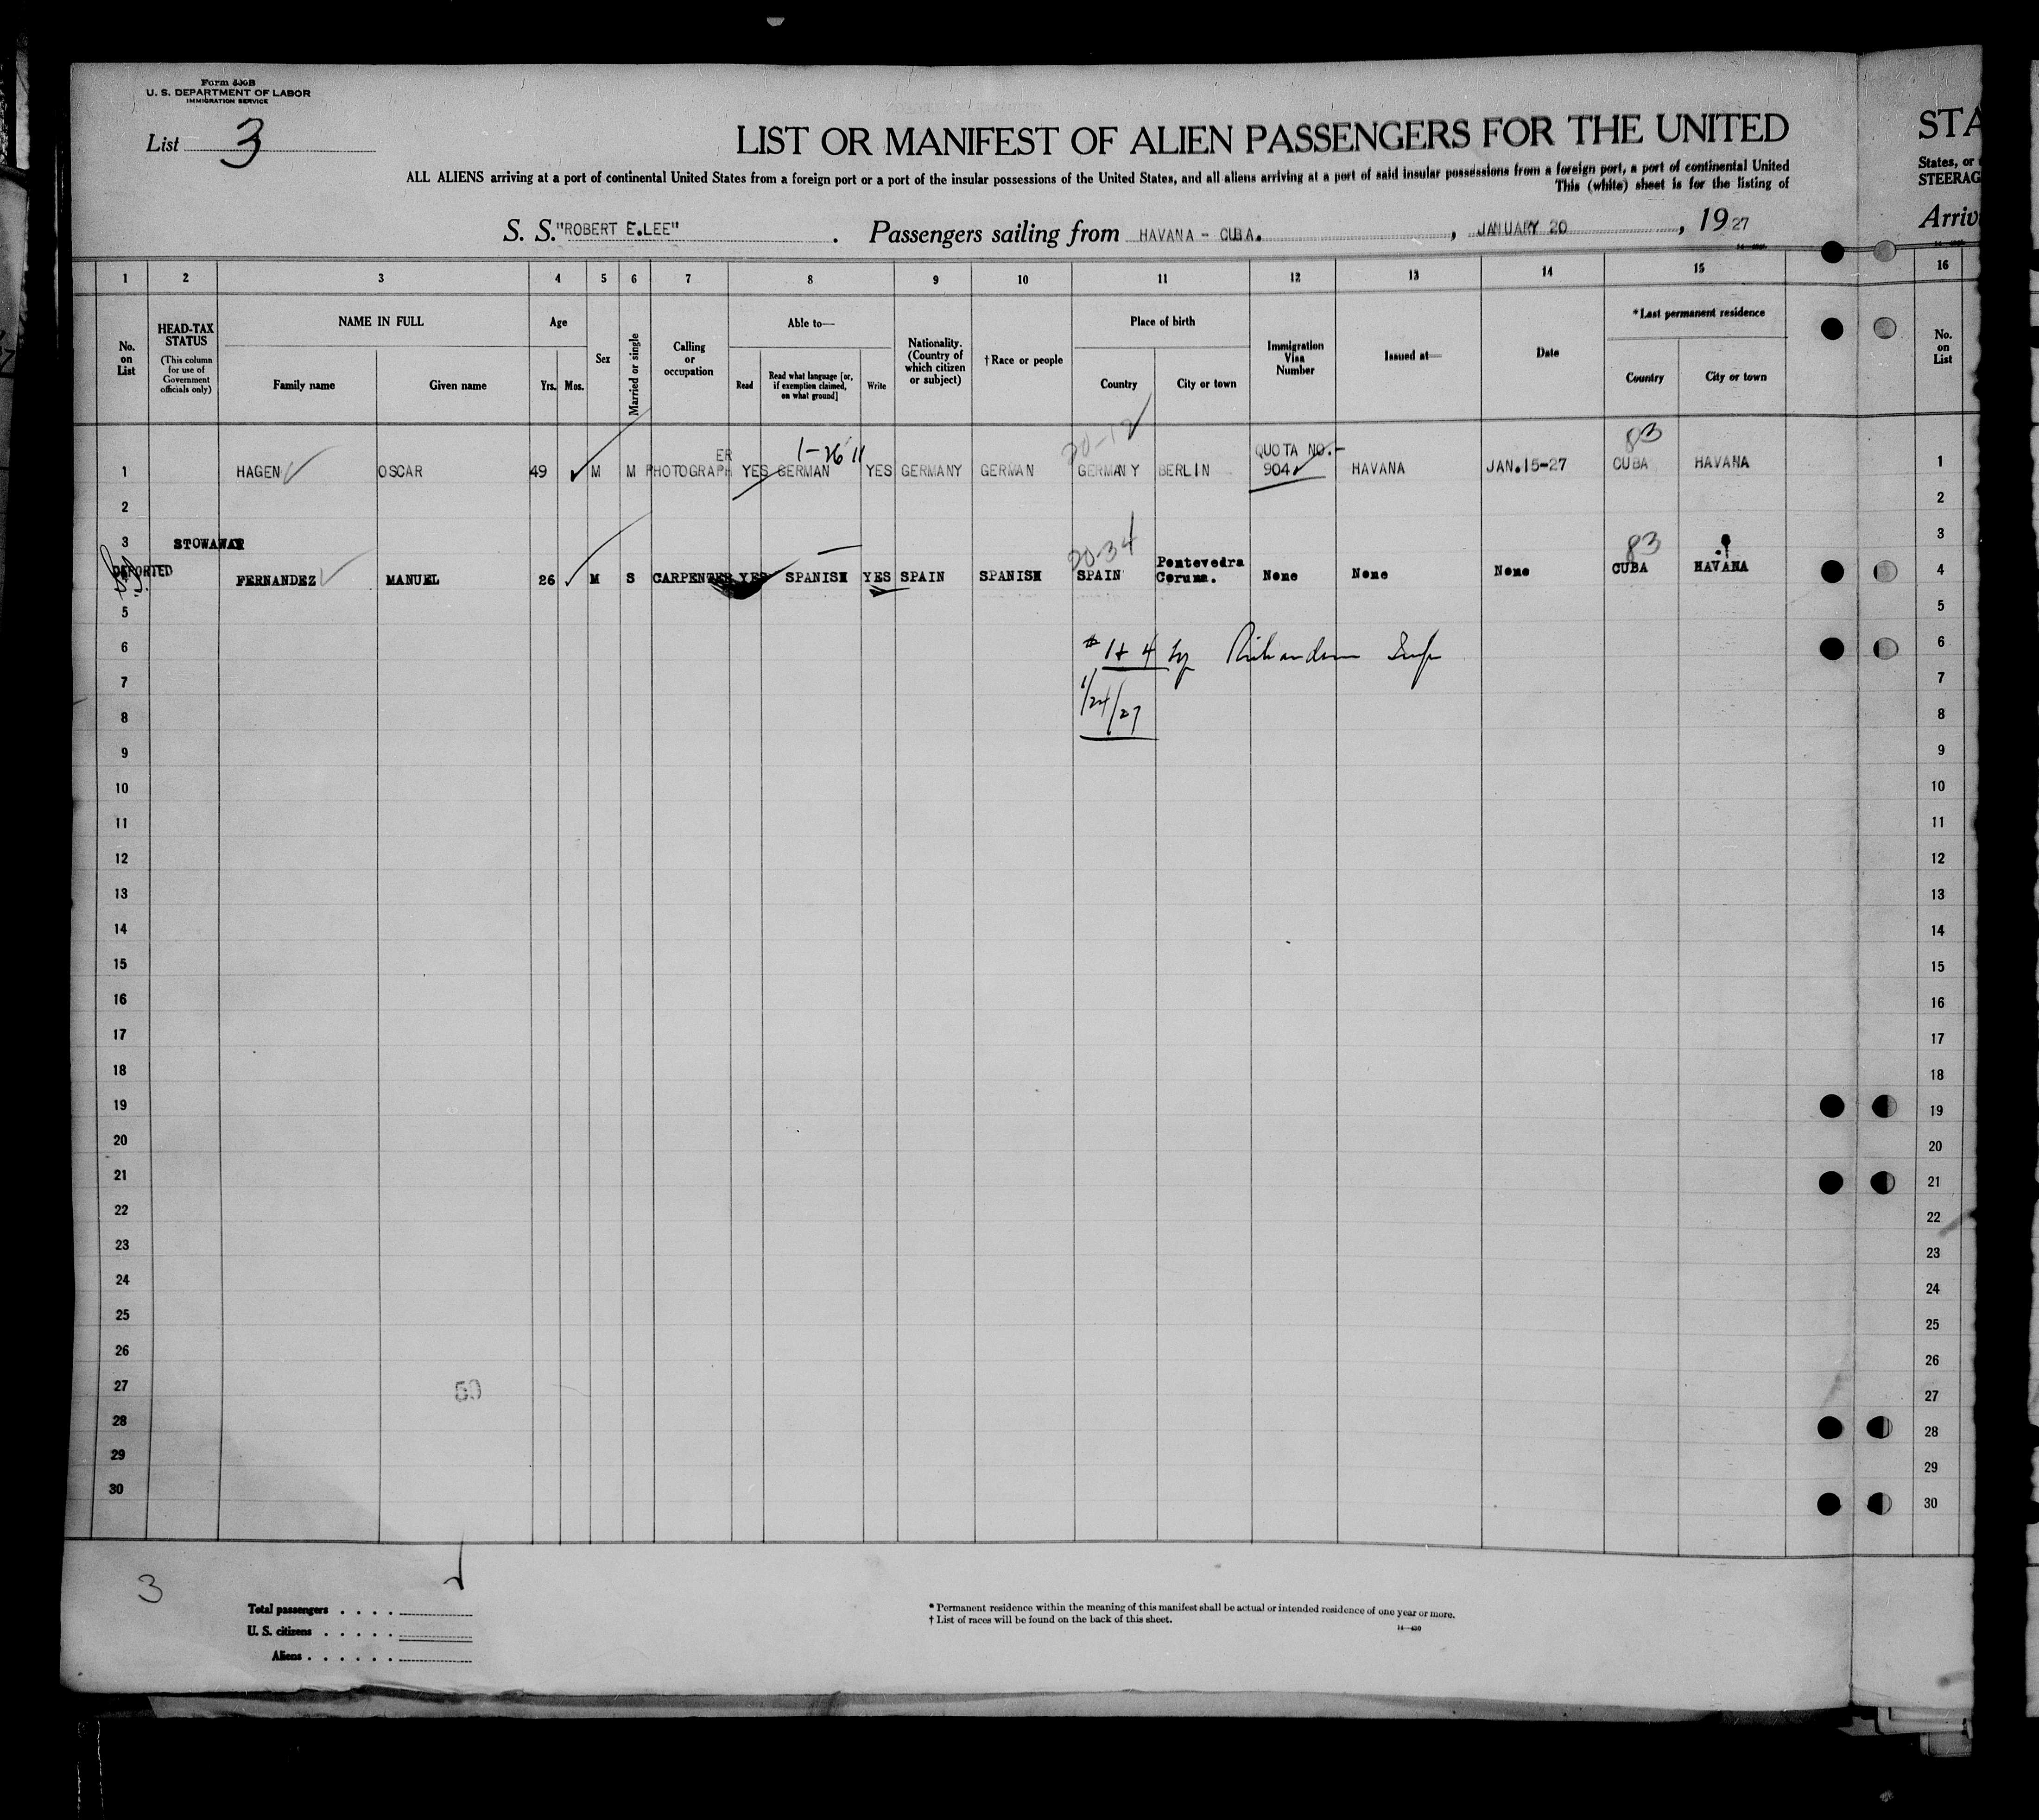 Form 500B
U. S. DEPARTMENT OF LABOR
IMMIGRATION SERVICE
List 3
LIST OR MANIFEST OF ALIEN PASSENGERS FOR THE UNITED
STA
ALL ALIENS arriving at a port of continental United States from a foreign port or a port of the insular possessions of the United States, and all aliens arriving at a port of said insular possessions from a foreign port, a port of continental United
States, or
This (white) sheet is for the listing of
STEERAG
S. S. "ROBERT E.LEE" . Passengers sailing from HAVANA - CUBA. , JANUARY 20 , 19 27
Arriv
1 2 3 4 5 6 7 8 9 10 11 12 13 14 15 16
No. on List
HEAD-TAX STATUS
(This column for use of Government officials only)
NAME IN FULL
Family name Given name
Age
Yrs. Mos.
Sex
Married or single
Calling or occupation
Able to—
Read
Read what language [or, if exemption claimed, on what ground]
Write
Nationality. (Country of which citizen or subject)
†Race or people
Place of birth
Country City or town
Immigration Visa Number
Issued at—
Date
*Last permanent residence
Country City or town
No. on List
ER 1-26 11 20-12 QUOTA NO.- 83
1 HAGEN OSCAR 49 M M PHOTOGRAPH YES GERMAN YES GERMANY GERMAN GERMANY BERLIN 904 HAVANA JAN.15-27 CUBA HAVANA 1
2 2
3 STOWAWAY 20-34 83 3
DEPORTED FERNANDEZ MANUEL 26 M S CARPENTER YES SPANISH YES SPAIN SPANISH SPAIN Pontevedra Coruna. None None None CUBA HAVANA 4
5 5
6 #1+4 by Richardson Insp 6
7 1/24/27 7
8 8
9 9
10 10
11 11
12 12
13 13
14 14
15 15
16 16
17 17
18 18
19 19
20 20
21 21
22 22
23 23
24 24
25 25
26 26
27 50 27
28 28
29 29
30 30
3
Total passengers . . . .
U. S. citizens . . . . .
Aliens . . . . . .
* Permanent residence within the meaning of this manifest shall be actual or intended residence of one year or more.
† List of races will be found on the back of this sheet.
14—430